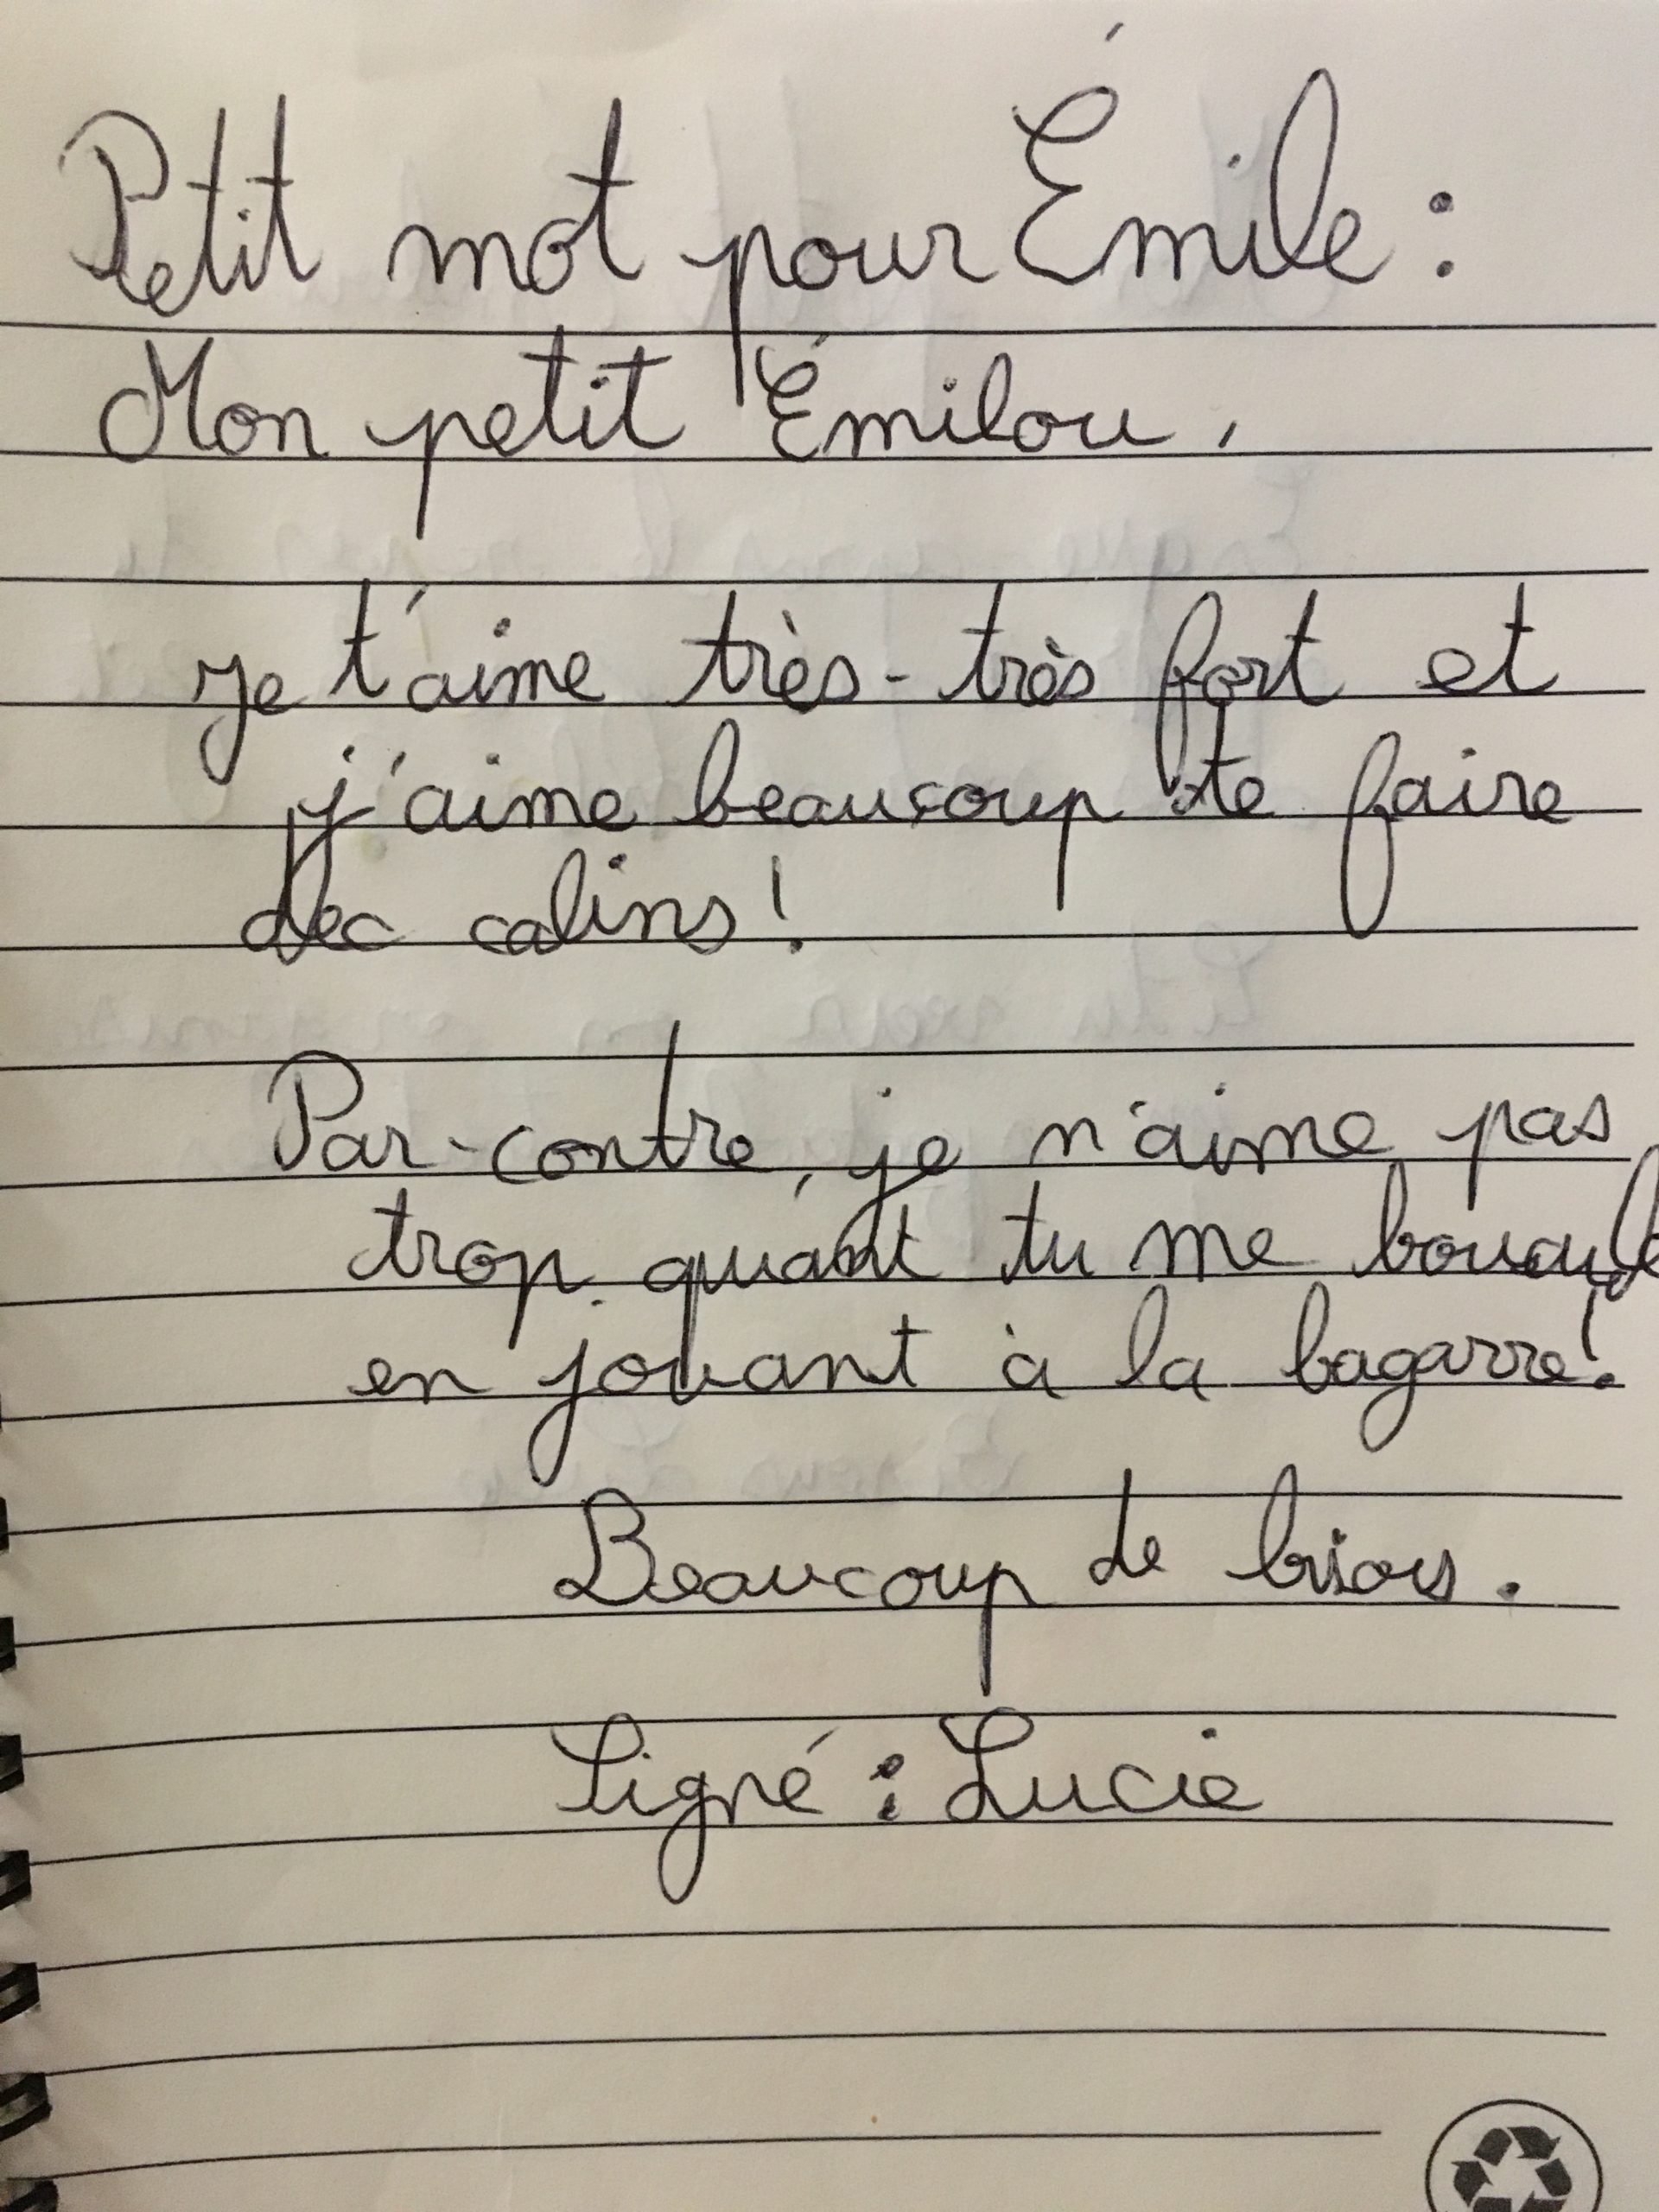 Petit mot pour Émile :
Mon petit Émilou,
je t'aime très-très fort et
j'aime beaucoup te faire
dec calins !
Par-contre, je n'aime pas
trop quant tu me
en jouant à la bagarre !
Beaucoup de
Signé : Lucie